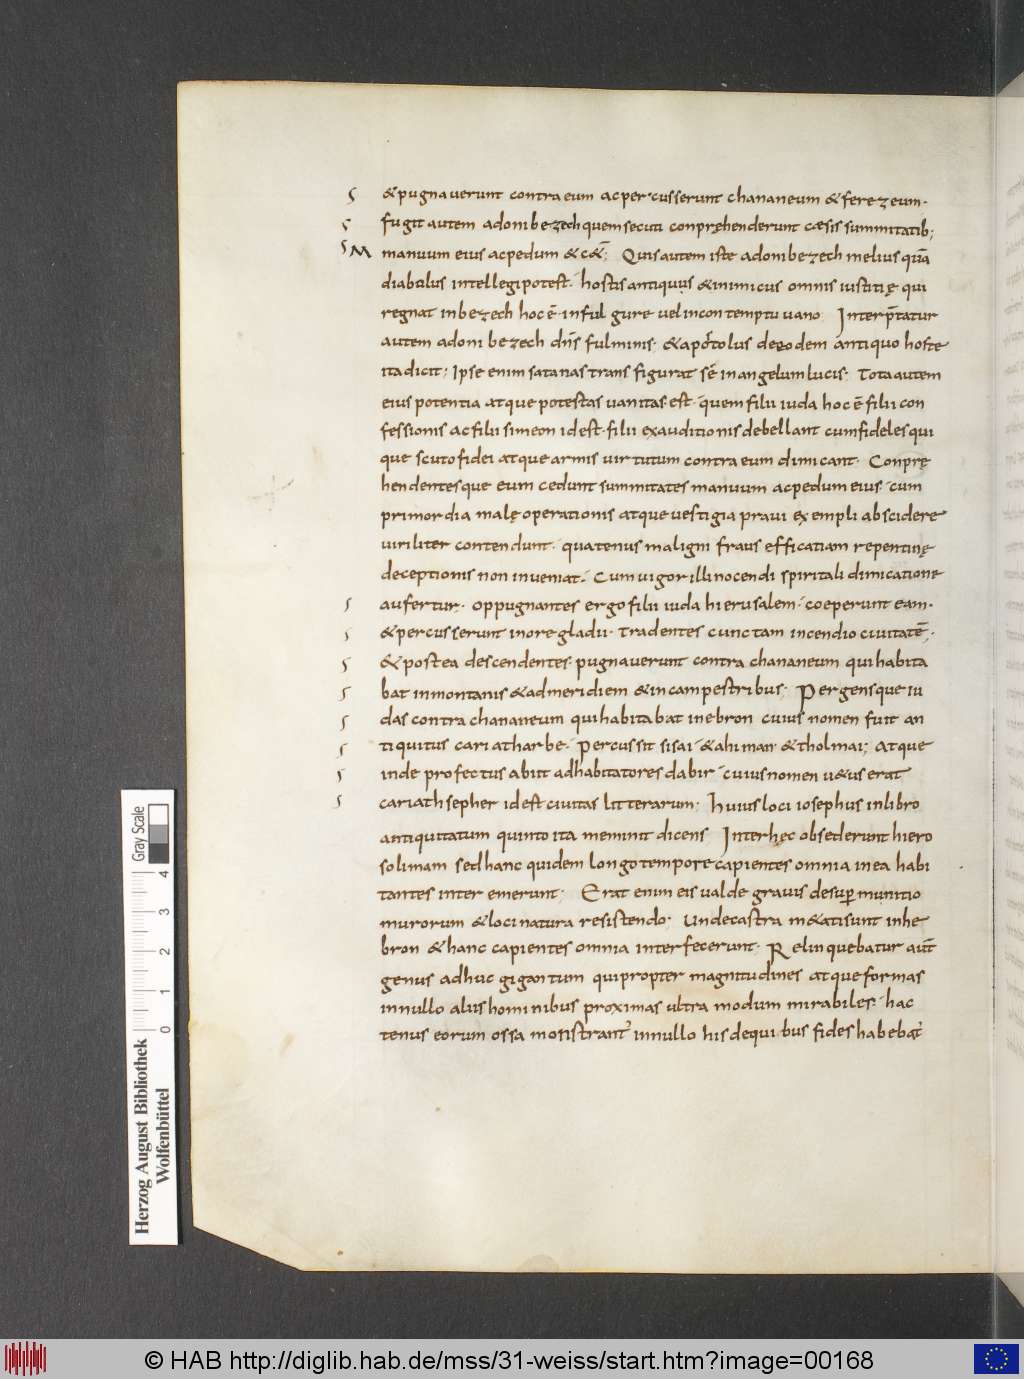 & pugnauerunt contra eum ac percusserunt chananeum & ferezeum·
fugit autem adonibezech quem secuti conpręhenderunt cæsis summitatib;
M manuum eius ac pedum & c&̄; Quis autem iste adonibezech melius quā
diabulus intellegi potest· hostis antiquus & inimicus omnis iustitię qui
regnat in bezech hoc ē in fulgure uel in contemptu uano Interp̄tatur
autem adonibezech dn̄s fulminis· & apo̅tolus de eodem antiquo hoste
ita dicit; Ipse enim satanas transfigurat sē in angelum lucis· Tota autem
eius potentia atque potestas uanitas est· quem filii iuda hoc ē filii con
fessionis ac filii simeon id est filii exauditionis debellant cum fideles qui
que scuto fidei atque armis uirtutum contra eum dimicant· Conprę
hendentesque eum cedunt summitates manuum ac pedum eius· cum
primordia malę operationis atque uestigia praui exempli abscidere
uiriliter contendunt· quatenus maligni fraus efficatiam repentinę
deceptionis non inueniat· Cum uigor illi nocendi spiritali dimicatione
aufertur· oppugnantes ergo filii iuda hierusalem· coeperunt eam·
& percusserunt in ore gladii· tradentes cunctam incendio ciuitatē;·
& postea descendentes pugnauerunt contra chananeum qui habita
bat in montanis & ad meridiem & in campestribus; Pergensque iu
das contra chananeum qui habitabat in ebron cuius nomen fuit an
tiquitus cariatharbe· percussit sisai & ahiman & tholmai; Atque
inde profectus abiit ad habitatores dabir cuius nomen u&us erat
cariath sepher id est ciuitas litterarum· huius loci iosephus in libro
antiquitatum quinto ita meminit dicens Inter hęc obsederunt hiero
solimam sed hanc quidem longo tempore capientes omnia in ea habi
tantes interemerunt· Erat enim eis ualde grauis desup̲ munitio
murorum & loci natura resistendo· Unde castra m&ati sunt in he
bron & hanc capientes omnia interfecerunt· Relinquebatur aut̄
genus adhuc gigantum qui propter magnitudines atque formas
in nullo aliis hominibus proximas ultra modum mirabiles· hac
tenus eorum ossa monstrant̉ in nullo his de quibus fides habebat̉
Herzog August Bibliothek
Wolfenbüttel
0 1 2 3 4
Gray Scale
© HAB http://diglib.hab.de/mss/31-weiss/start.htm?image=00168